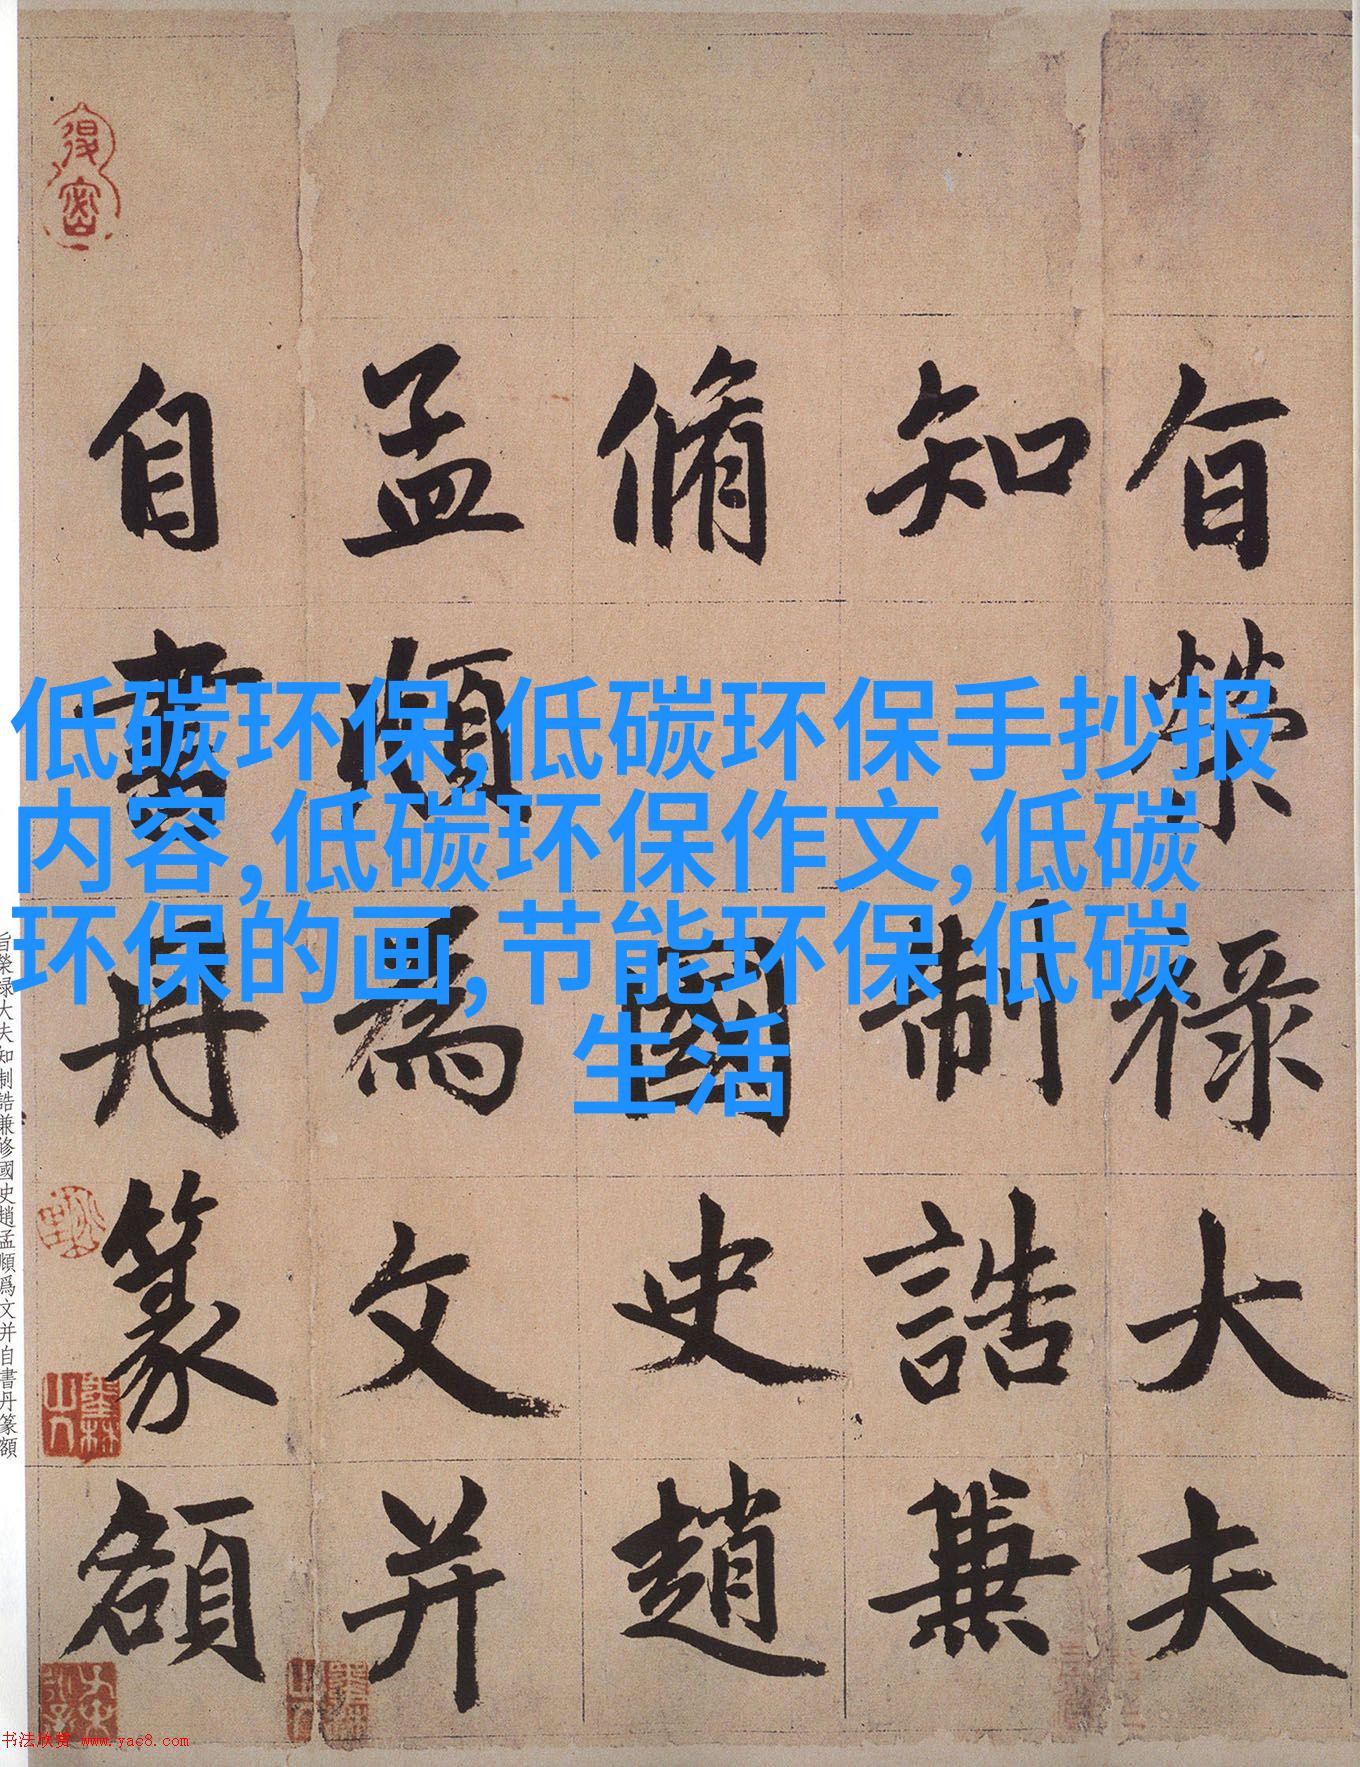 旨榮祿大夫
知制誥兼
脩國史趙
孟頫為文并
自書丹篆額
低碳环保,低碳环保手抄报
内容,低碳环保作文,低碳
环保的画,节能环保 低碳
生活
旨榮禄大夫知制誥兼修國史趙孟頫爲文并自書丹篆額
书法欣赏 www.yac8.com